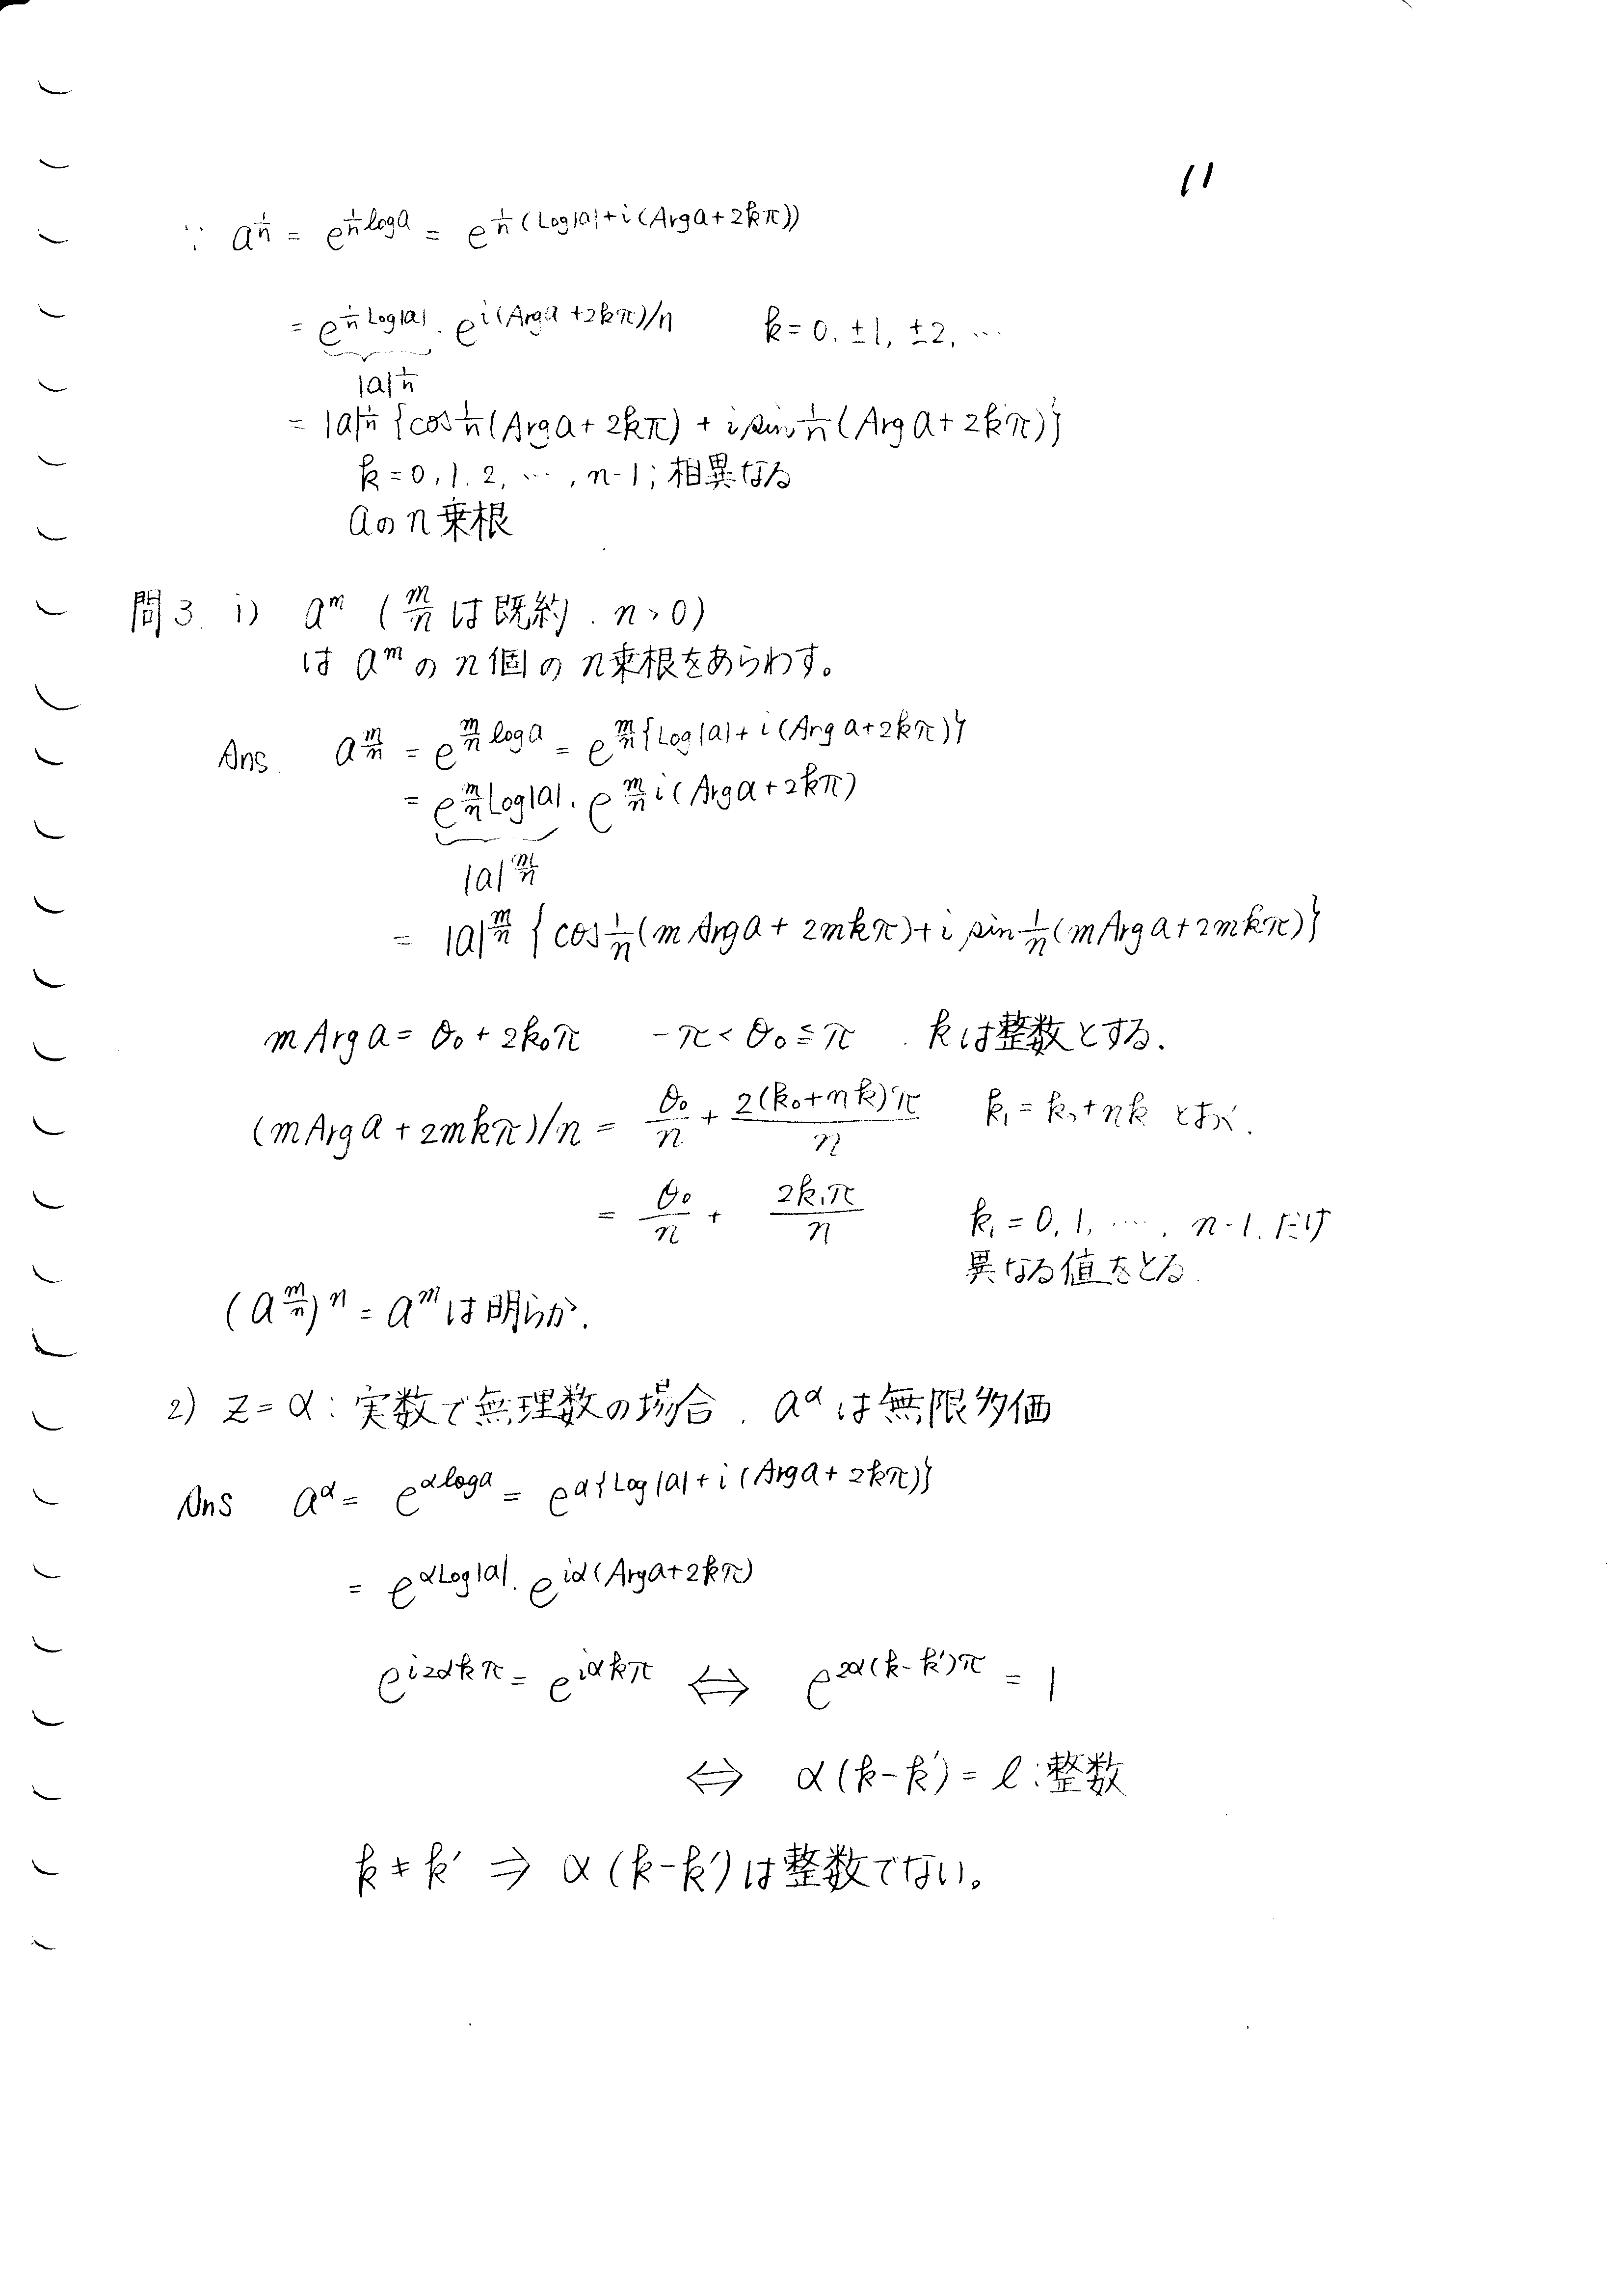 11
∵ a^{1/n} = e^{1/n log a} = e^{1/n (Log|a| + i(Arg a + 2kπ))}
= e^{1/n Log|a|} · e^{i(Arg a + 2kπ)/n}   k = 0, ±1, ±2, …
|a|^{1/n}
= |a|^{1/n} {cos 1/n (Arg a + 2kπ) + i sin 1/n (Arg a + 2kπ)}
k = 0, 1. 2, …, n-1 ; 相異なる
a の n 乗根
問3. i) a^m ( m/n は既約. n > 0)
は a^m の n個の n乗根をあらわす。
Ans. a^{m/n} = e^{m/n log a} = e^{m/n {Log|a| + i(Arg a + 2kπ)}}
= e^{m/n Log|a|} · e^{m/n i(Arg a + 2kπ)}
|a|^{m/n}
= |a|^{m/n} {cos 1/n (m Arg a + 2mkπ) + i sin 1/n (m Arg a + 2mkπ)}
m Arg a = θ₀ + 2k₀π   -π < θ₀ ≦ π . k は整数とする.
(m Arg a + 2mkπ)/n = θ₀/n + 2(k₀+nk)π/n   k₁ = k₀+nk とおく.
= θ₀/n + 2k₁π/n   k₁ = 0, 1, …, n-1. だけ
異なる値をとる.
(a^{m/n})^n = a^m は明らか.
2) z = α : 実数で無理数の場合. a^α は無限多価
Ans a^α = e^{α log a} = e^{α{Log|a| + i(Arg a + 2kπ)}}
= e^{α Log|a|} · e^{iα(Arg a + 2kπ)}
e^{i2αkπ} = e^{iαkπ} ⇔ e^{2α(k-k′)π} = 1
⇔ α(k-k′) = ℓ : 整数
k ≠ k′ ⇒ α(k-k′) は整数でない。